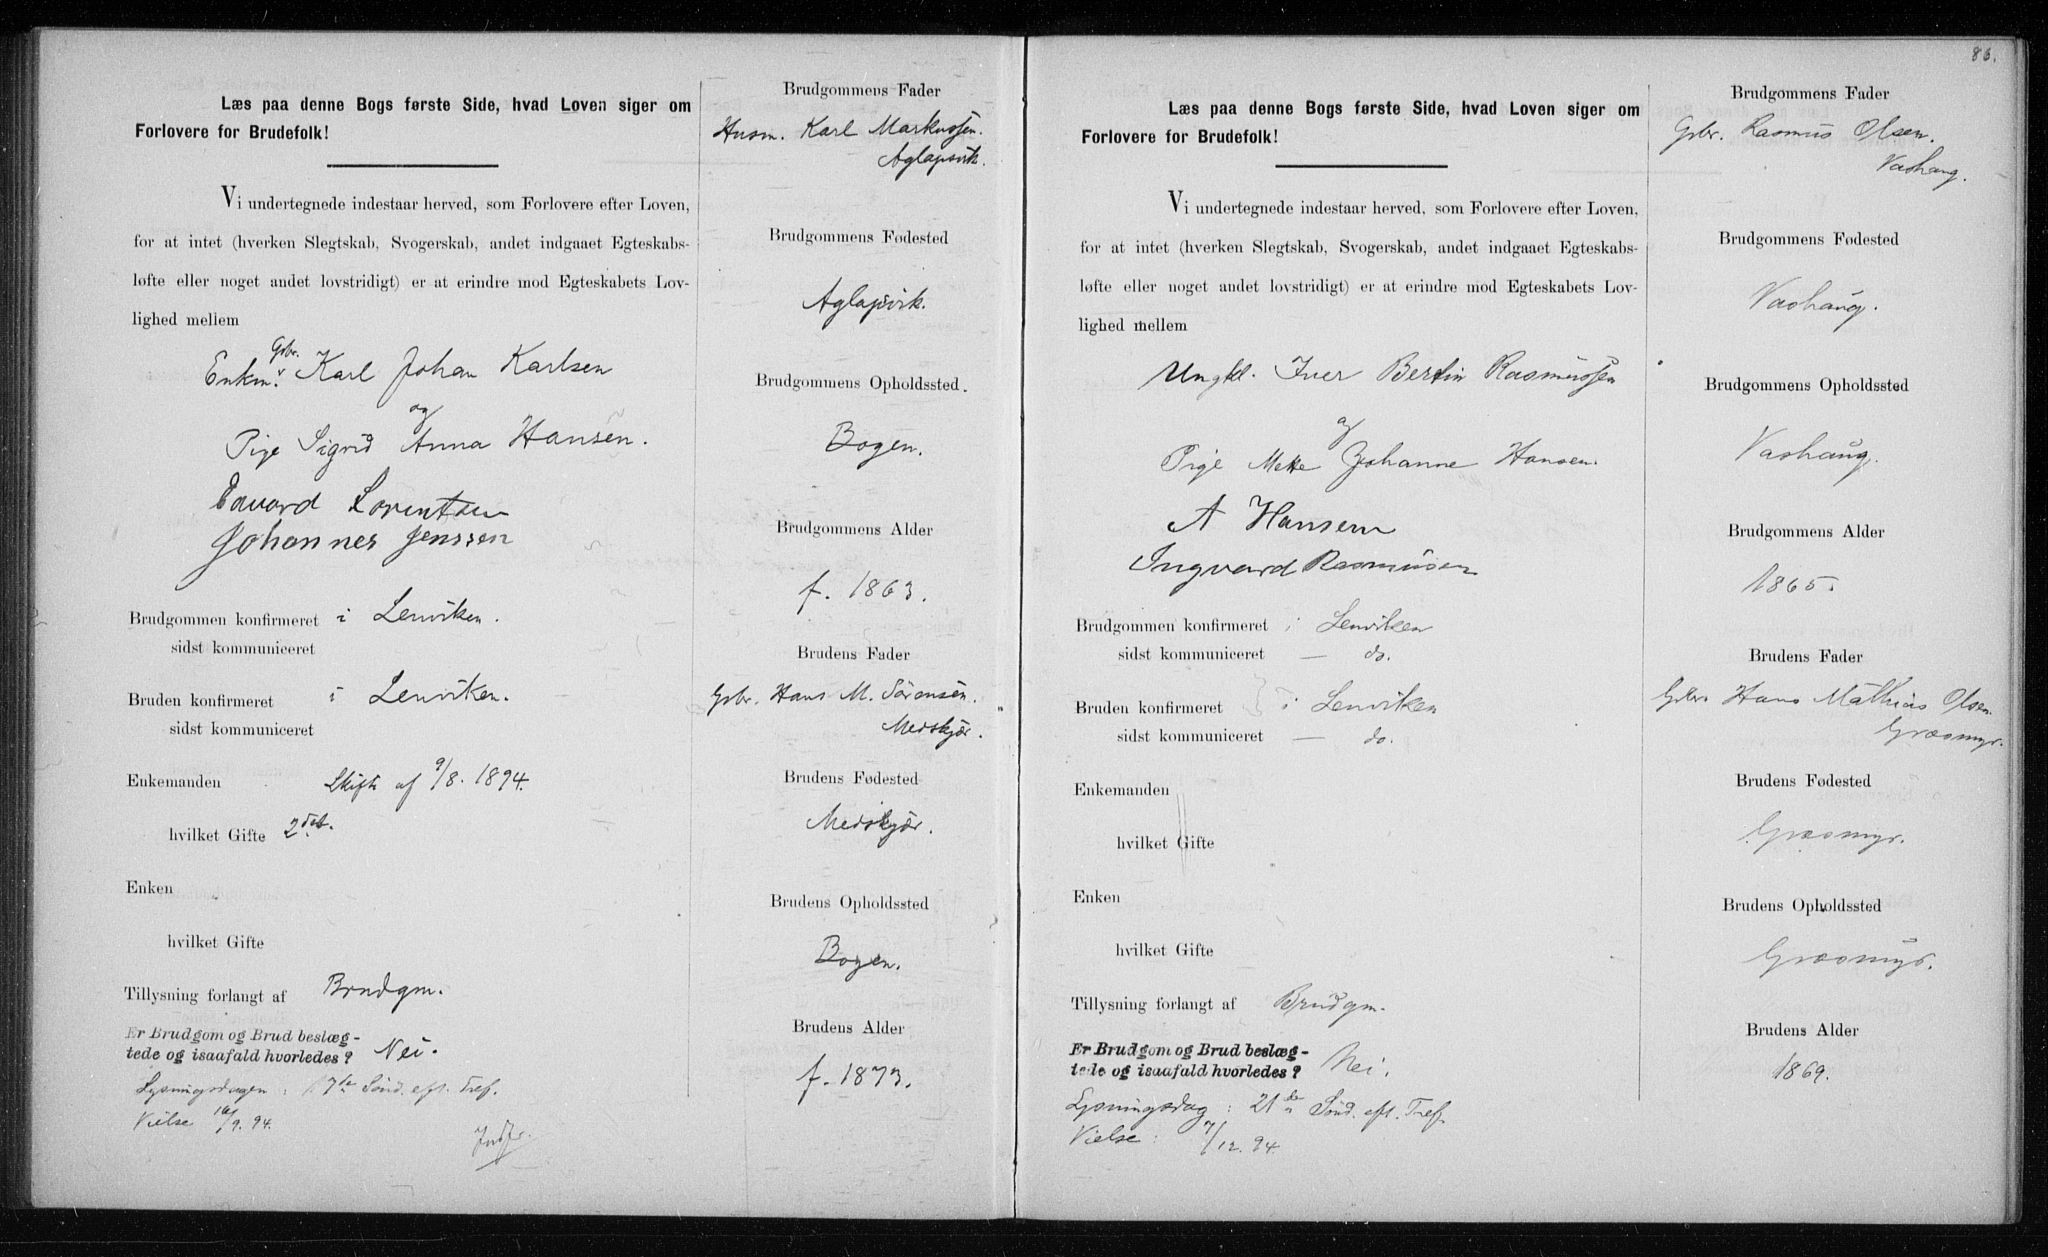 Læs paa denne Bogs første Side, hvad Loven siger om
Forlovere for Brudefolk!
Vi undertegnede indestaar herved, som Forlovere efter Loven,
for at intet (hverken Slegtskab, Svogerskab, andet indgaaet Egteskabs-
løfte eller noget andet lovstridigt) er at erindre mod Egteskabets Lov-
lighed mellem
Enkm. Gbr. Karl Johan Karlsen
og
Pige Sigrid Anna Hansen.
Edvard Lorentsen
Johannes Jenssen
Brudgommen konfirmeret i Lenviken.
sidst kommuniceret
Bruden konfirmeret i Lenviken.
sidst kommuniceret
Enkemanden Skifte af 9/8. 1894.
hvilket Gifte 2det.
Enken
hvilket Gifte
Tillysning forlangt af Brudgm.
Er Brudgom og Brud beslæg-
tede og isaafald hvorledes? Nei.
Lysningsdagen: 17de Sønd. eft. Tref.
Vielse 16/9. 94.
Indf.
Brudgommens Fader
Husm. Karl Markussen.
Aglapsvik.
Brudgommens Fødested
Aglapsvik.
Brudgommens Opholdssted.
Bogen.
Brudgommens Alder
f. 1863.
Brudens Fader
Gbr. Hans M. Sørensen.
Medskjær.
Brudens Fødested
Medskjær.
Brudens Opholdssted
Bogen.
Brudens Alder
f. 1873.
86.
Læs paa denne Bogs første Side, hvad Loven siger om
Forlovere for Brudefolk!
Vi undertegnede indestaar herved, som Forlovere efter Loven,
for at intet (hverken Slegtskab, Svogerskab, andet indgaaet Egteskabs-
løfte eller noget andet lovstridigt) er at erindre mod Egteskabets Lov-
lighed mellem
Ungkl. Iver Bertin Rasmussen
og
Pige Mette Johanne Hansen.
A Hansen
Ingvard Rasmusen
Brudgommen konfirmeret i Lenviken
sidst kommuniceret — do.
Bruden konfirmeret i Lenviken
sidst kommuniceret — do.
Enkemanden
hvilket Gifte
Enken
hvilket Gifte
Tillysning forlangt af Brudgm.
Er Brudgom og Brud beslæg-
tede og isaafald hvorledes? Nei.
Lysningsdag: 21de Sønd. eft. Tref.
Vielse: 7/12. 94.
Brudgommens Fader
Gbr. Rasmus Olsen.
Vashaug.
Brudgommens Fødested
Vashaug.
Brudgommens Opholdssted
Vashaug.
Brudgommens Alder
1865.
Brudens Fader
Gbr. Hans Mathias Olsen
Græsmyr.
Brudens Fødested
Græsmyr.
Brudens Opholdssted
Græsmyr.
Brudens Alder
1869.